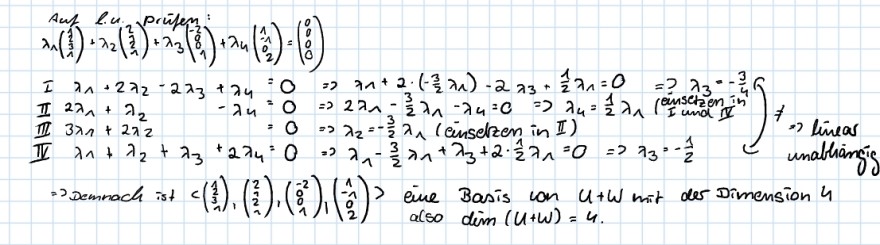 Auf l.u. prüfen:
λ1 (1 2 3 1) + λ2 (2 1 2 1) + λ3 (-2 0 0 1) + λ4 (1 -1 0 2) = (0 0 0 0)
I λ1 + 2λ2 - 2λ3 + λ4 = 0 => λ1 + 2·(-3/2 λ1) - 2λ3 + 1/2 λ1 = 0 => λ3 = -3/4
II 2λ1 + λ2 - λ4 = 0 => 2λ1 - 3/2 λ1 - λ4 = 0 => λ4 = 1/2 λ1 (einsetzen in I und IV)
III 3λ1 + 2λ2 = 0 => λ2 = -3/2 λ1 (einsetzen in II)
IV λ1 + λ2 + λ3 + 2λ4 = 0 => λ1 - 3/2 λ1 + λ3 + 2·1/2 λ1 = 0 => λ3 = -1/2
≠ => linear unabhängig
=> Demnach ist <(1 2 3 1), (2 1 2 1), (-2 0 0 1), (1 -1 0 2)> eine Basis von U+W mit der Dimension 4
also dim (U+W) = 4.